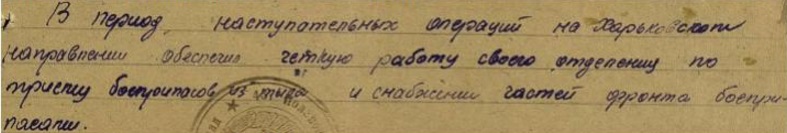 В период, наступательных операций на Харьковском
направлении обеспечил четкую работу своего отделения по
приему боеприпасов из тыла и снабжении частей фронта боепри-
пасами.